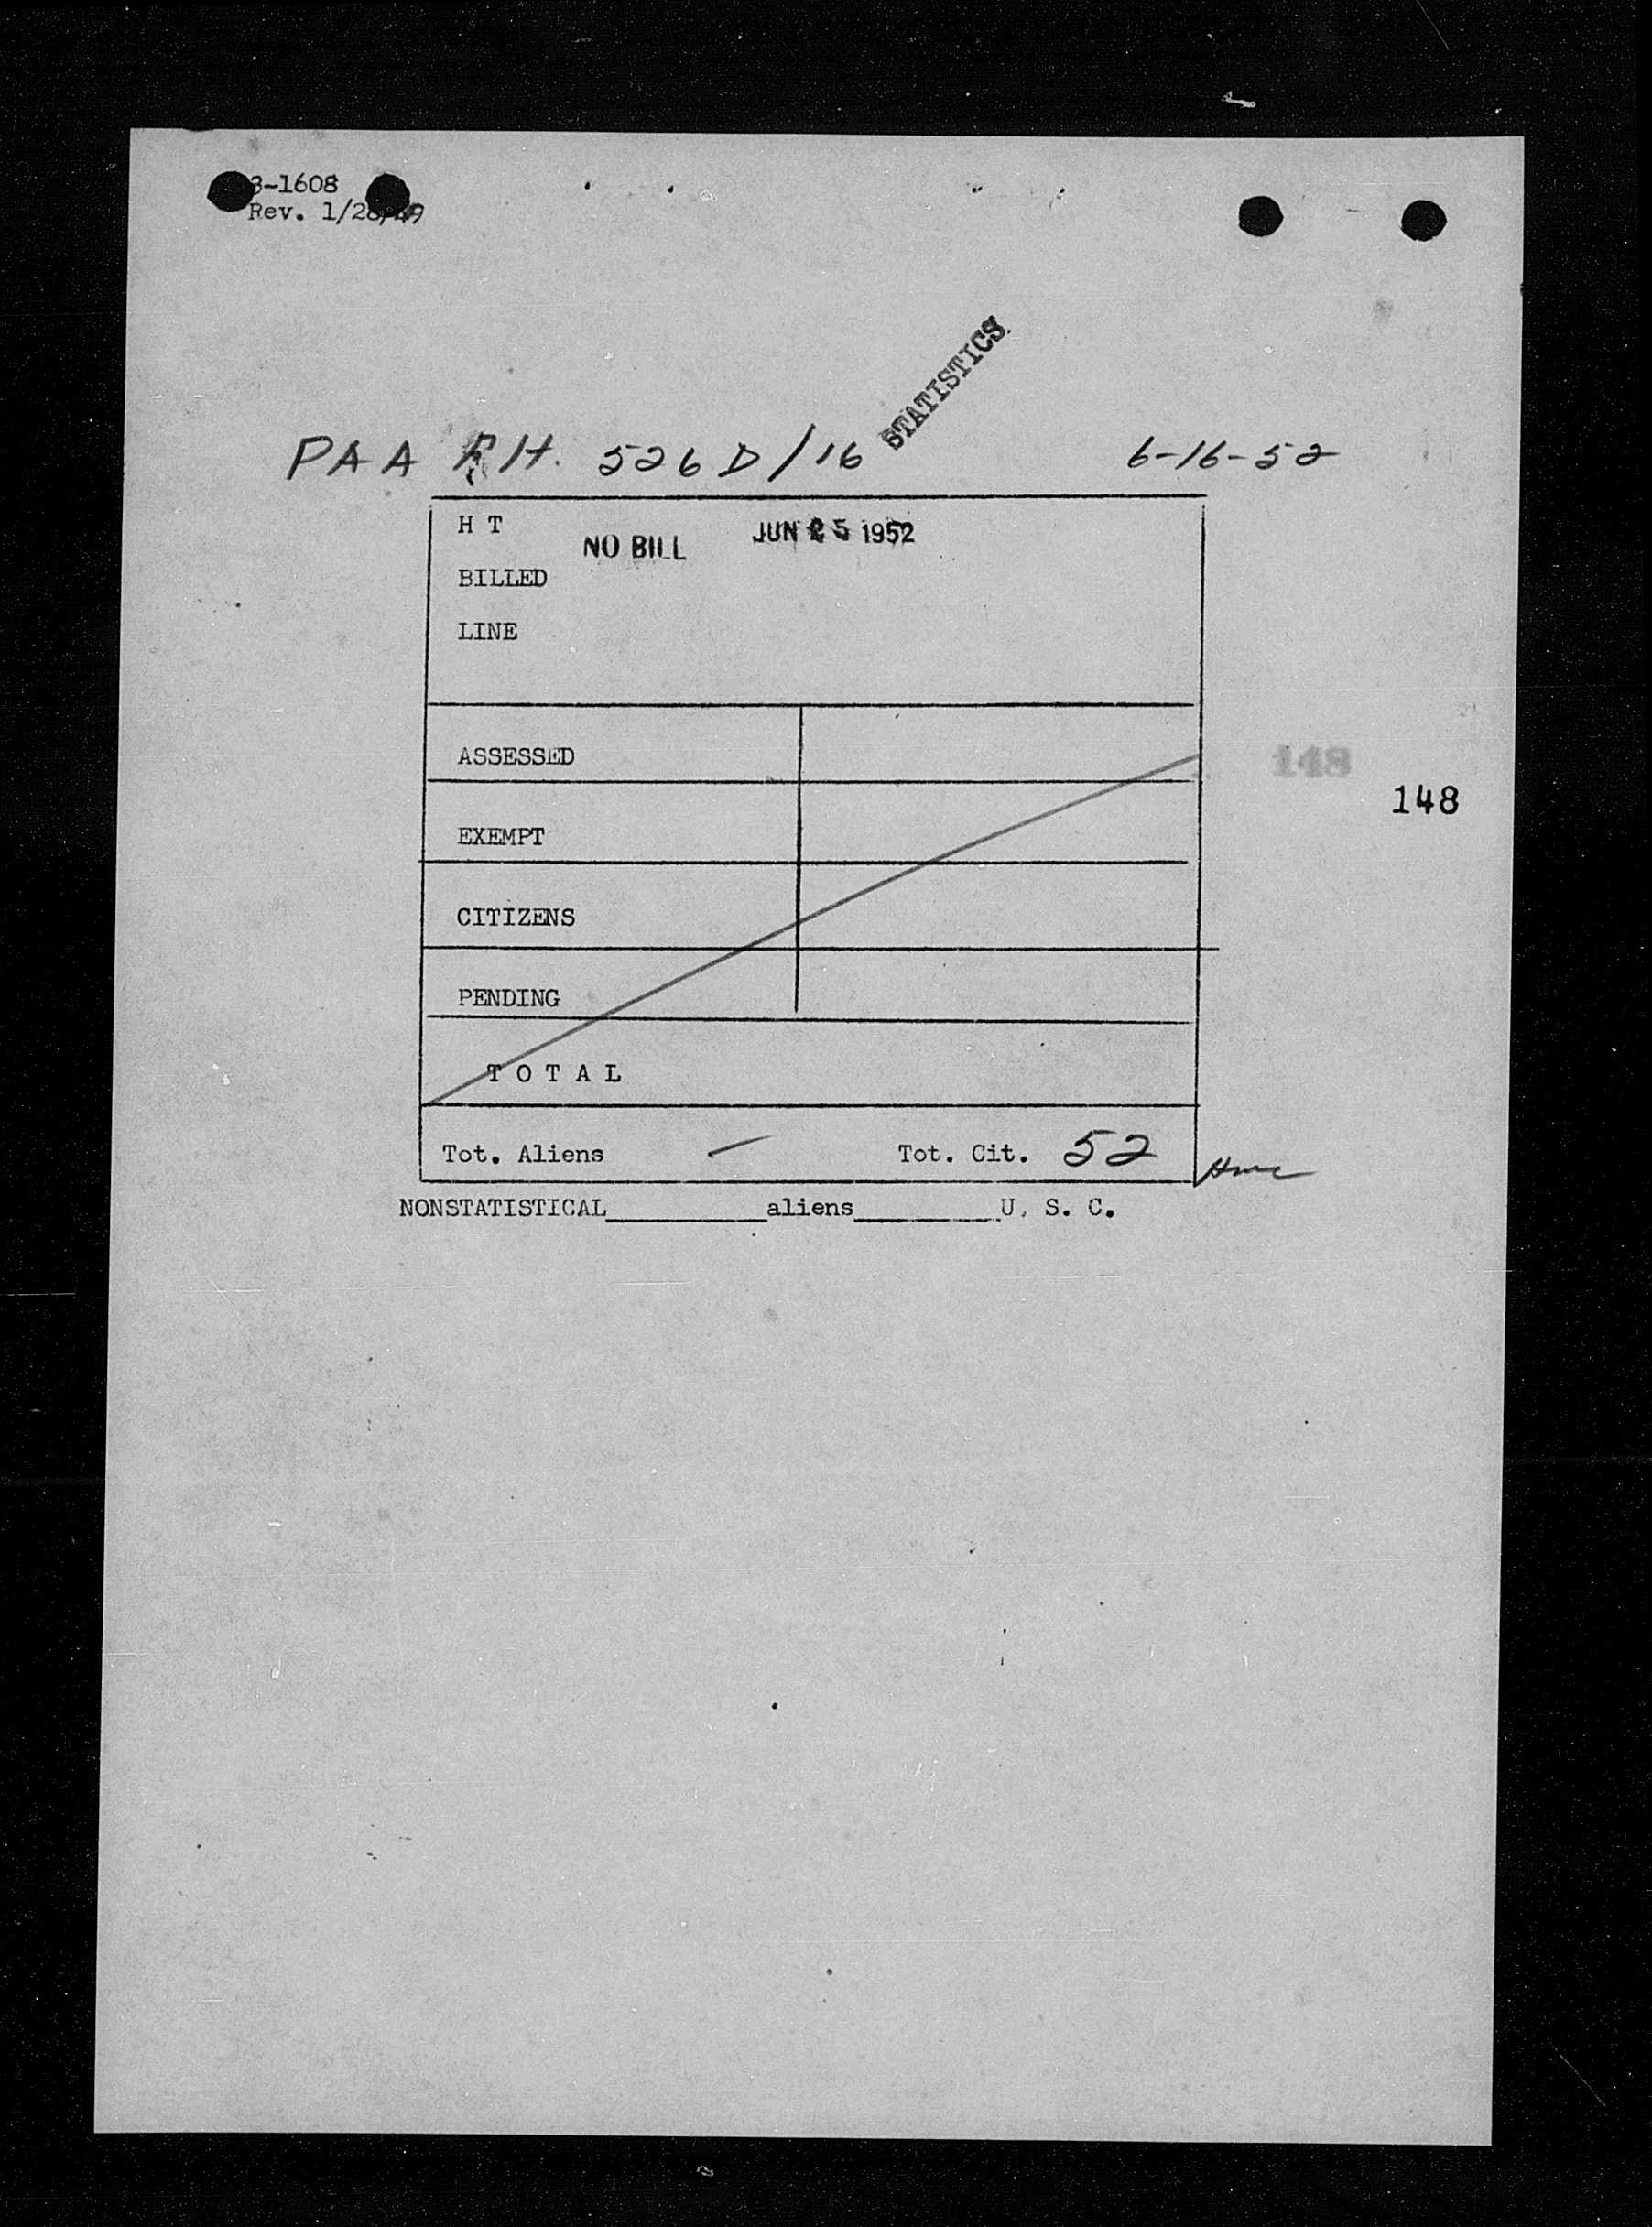 3-1608
Rev. 1/28/49
STATISTICS
PAA 526 D/16 6-16-52
H T
NO BILL JUN 25 1952
BILLED
LINE
ASSESSED
148
148
EXEMPT
CITIZENS
PENDING
T O T A L
Tot. Aliens — Tot. Cit. 52
NONSTATISTICAL__________aliens_________U. S. C.